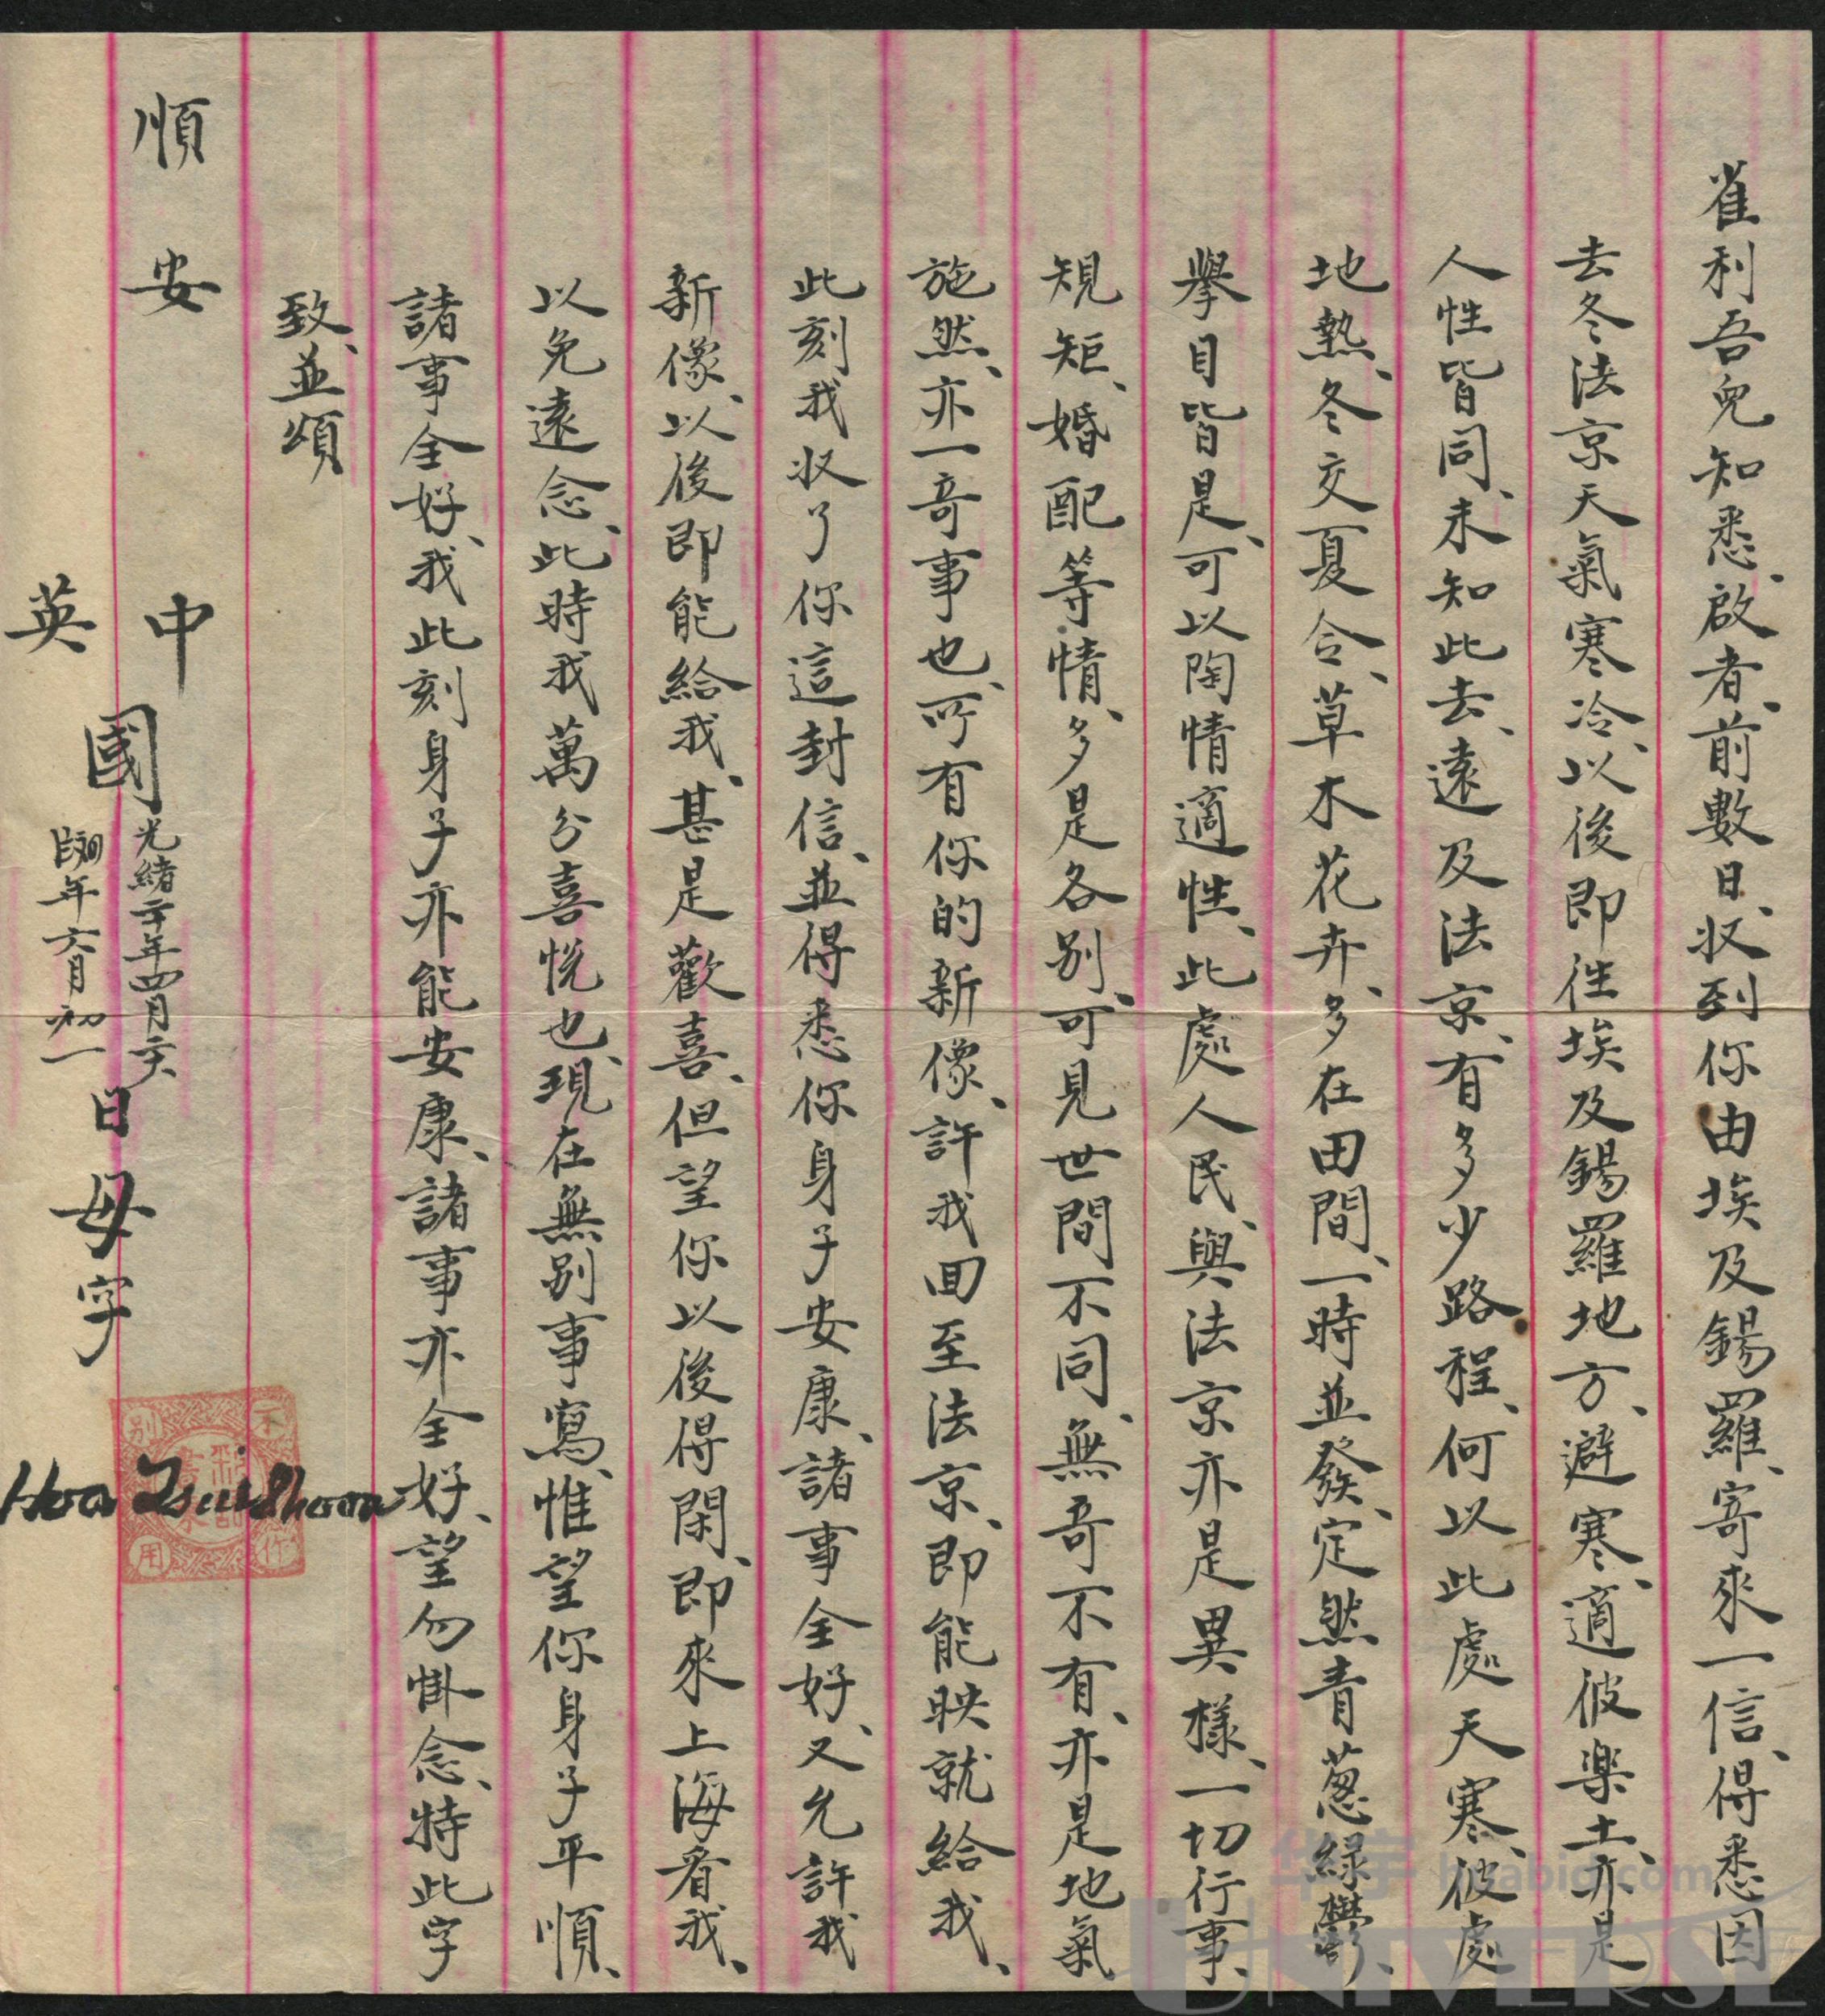 雀利吾兒知悉、啟者、前數日、収到你由埃及錫羅、寄來一信、得悉因
去冬法京天氣寒冷、以後即徃埃及錫羅地方、避寒、適彼樂土、亦是
人性皆同、未知此去、遠及法京、有多少路程、何以此處天寒、彼處
地熱、冬交夏令、草木花卉、多在田間、一時並發、定然青葱緑鬱、
舉目皆是、可以陶情適性、此處人民、與法京亦是異樣、一切行事、
規矩、婚配等情、多是各别、可見世間不同、無竒不有、亦是地氣
施然、亦一竒事也、所有你的新像、許我回至法京、即能映就給我、
此刻我収了你這封信、並得悉你身子安康、諸事全好、又允許我
新像、以後即能給我、甚是歡喜、但望你以後得閑、即來上海看我、
以免遠念、此時我萬分喜悦也、現在無别事寫、惟望你身子平順、
諸事全好、我此刻身子亦能安康、諸事亦全好、望勿掛念、特此字
致、並頌
順安
中
英
國
光緒二十年四月二十八
年六月初一
日母字
Hoo Tsui Shoon
不
别
作
用
华宇 huabid.com
UNIVERSE